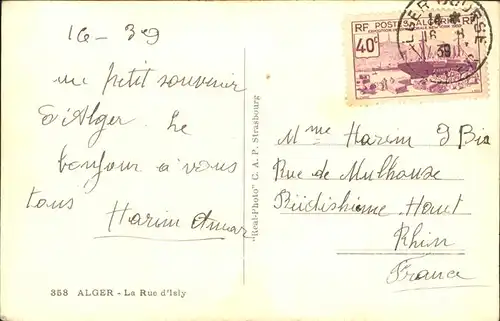 16-39
un petit souvenir
d'Alger. Le
bonjour à vous
tous Harim Amar
358 ALGER - La Rue d'Isly
"Real-Photo" C. A. P. Strasbourg
ALGER BOURSE
39
RF POSTES ALGERIE RF
40c
Mme Harim J Bia
Rue de Mulhouse
Rüdishime Haut
Rhin
France